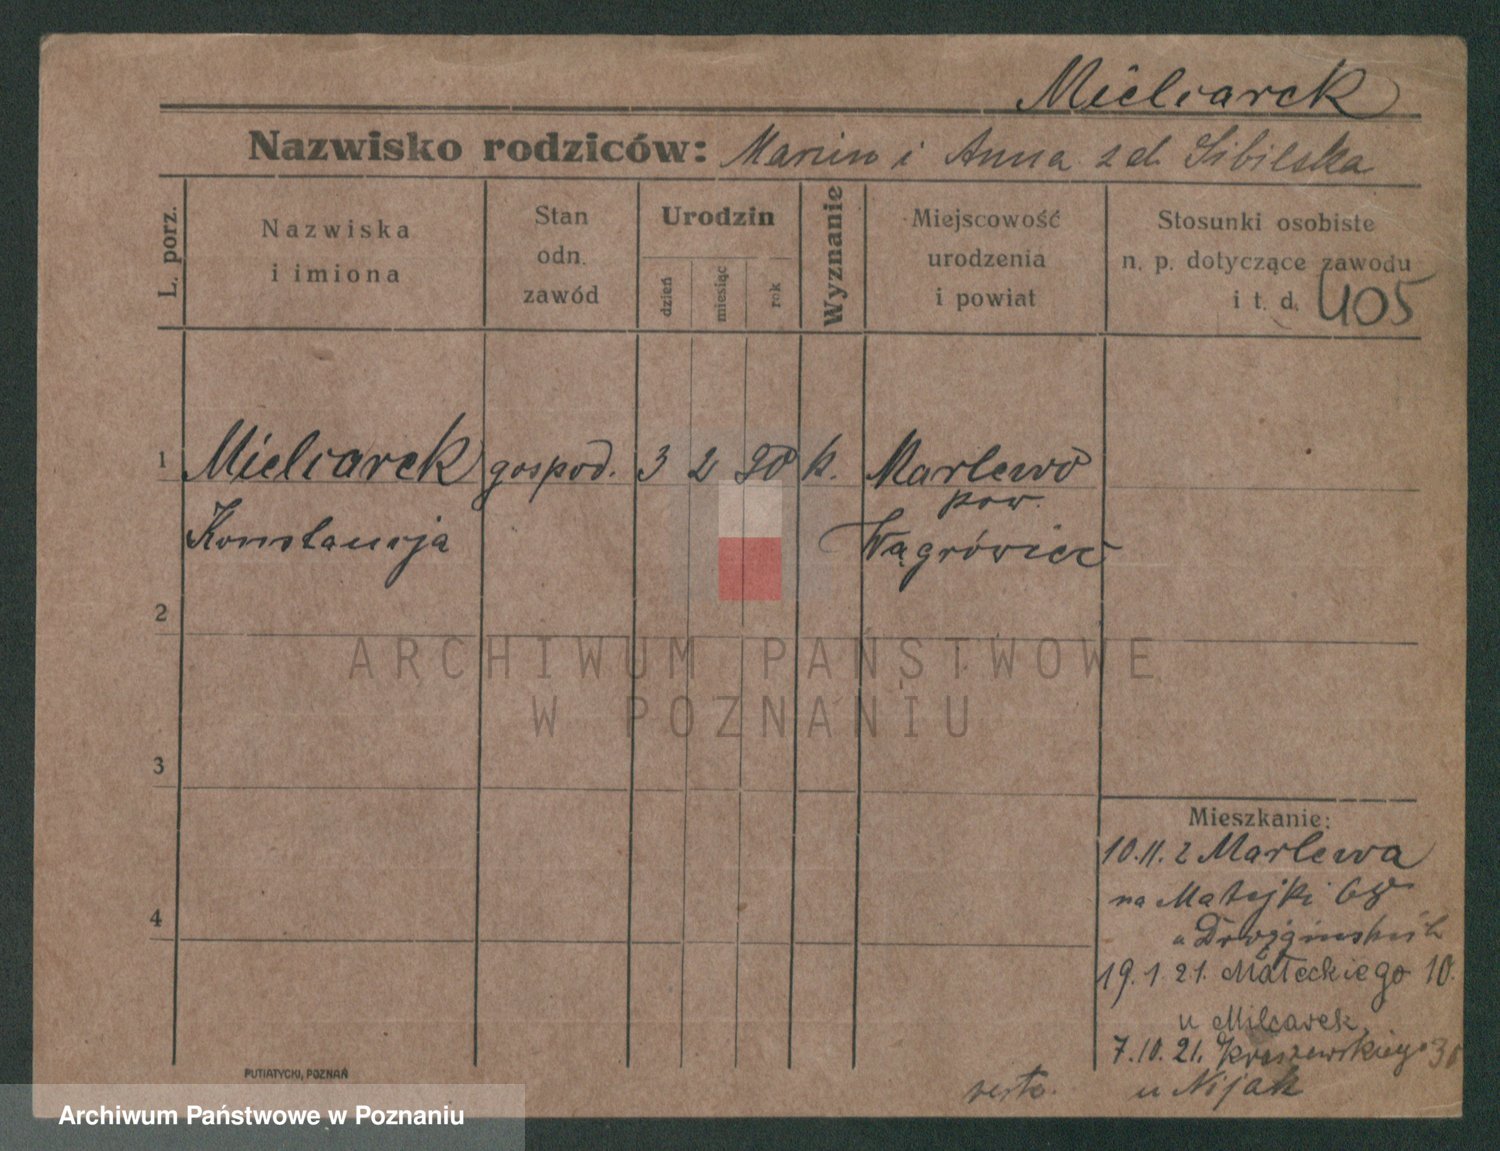 Mielcarek
Nazwisko rodziców: Marcin i Anna z d. Sibilska
L. porz.
Nazwiska
i imiona
Stan
odn.
zawód
Urodzin
dzień
miesiąc
rok
Wyznanie
Miejscowość
urodzenia
i powiat
Stosunki osobiste
n. p. dotyczące zawodu
i t. d. 405
1 Mielcarek gospod. 3 2 90 k. Marlewo
pow.
Konstancja Wągrówiec
2
3
4
Mieszkanie:
10.11.2 Marlewa
na Matejki 68
u
19.1.21. Małeckiego 10.
u Milcarek
7.10.21. Kraszewskiego
u Nijak
verte.
PUTIATYCKI, POZNAŃ
ARCHIWUM PAŃSTWOWE
W POZNANIU
Archiwum Państwowe w Poznaniu